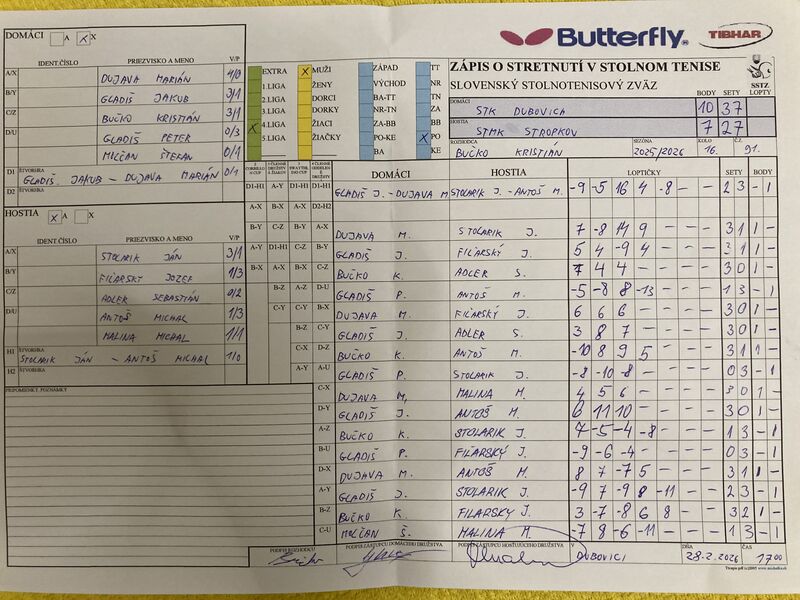 DOMÁCI A X X
Butterfly TIBHAR
IDENT.ČÍSLO PRIEZVISKO A MENO V/P
A/X DUJAVA MARIÁN 4/0
B/Y GLADIŠ JAKUB 3/1
C/Z BUČKO KRISTIÁN 3/1
D/U GLADIŠ PETER 0/3
MOLČAN ŠTEFAN 0/1
D1 ŠTVORHRA GLADIŠ JAKUB - DUJAVA MARIÁN 0/1
D2 ŠTVORHRA
EXTRA
1.LIGA
2.LIGA
3.LIGA
X 4.LIGA
5.LIGA
X MUŽI
ŽENY
DORCI
DORKY
ŽIACI
ŽIAČKY
ZÁPAD
VÝCHOD
BA-TT
NR-TN
ZA-BB
PO-KE
BA
TT
NR
TN
ZA
BB
X PO
KE
ZÁPIS O STRETNUTÍ V STOLNOM TENISE
SLOVENSKÝ STOLNOTENISOVÝ ZVÄZ
SSTZ
BODY SETY LOPTY
DOMÁCI STK DUBOVICA 10 37
HOSTIA STMK STROPKOV 7 27
ROZHODCA BUČKO KRISTIÁN SEZÓNA 2025/2026 KOLO 16. Č.Z. 91.
HOSTIA X A X
IDENT.ČÍSLO PRIEZVISKO A MENO V/P
A/X STOLARIK JÁN 3/1
B/Y FIĽARSKÝ JOZEF 1/3
C/Z ADLER SEBASTIÁN 0/2
D/U ANTOŠ MICHAL 1/3
MALINA MICHAL 1/1
H1 ŠTVORHRA STOLARIK JÁN - ANTOŠ MICHAL 1/0
H2 ŠTVORHRA
PRIPOMIENKY, POZNÁMKY
DOMÁCI HOSTIA LOPTIČKY SETY BODY
D1-H1 A-Y D1-H1 D1-H1 GLADIŠ J. - DUJAVA M. STOLARIK J. - ANTOŠ M. -9 -5 16 4 -8 - - 2 3 - 1
A-X B-X A-X D2-H2
B-Y C-Z B-Y A-X DUJAVA M. STOLARIK J. 7 -8 14 9 - - - 3 1 1 -
A-Y D1-H1 C-Z B-Y GLADIŠ J. FIĽARSKÝ J. 5 4 -9 4 - - - 3 1 1 -
B-X A-X B-X C-Z BUČKO K. ADLER S. 7 4 4 - - - - 3 0 1 -
B-Z A-Z D-U GLADIŠ P. ANTOŠ M. -5 -8 8 -13 - - - 1 3 - 1
C-Y C-Y B-X DUJAVA M. FIĽARSKÝ J. 6 6 6 - - - - 3 0 1 -
B-Z C-Y GLADIŠ J. ADLER S. 3 8 7 - - - - 3 0 1 -
C-X D-Z BUČKO K. ANTOŠ M. -10 8 9 5 - - - 3 1 1 -
A-Y A-U GLADIŠ P. STOLARIK J. -8 -10 -8 - - - - 0 3 - 1
C-X DUJAVA M. MALINA M. 4 5 6 - - - - 3 0 1 -
D-Y GLADIŠ J. ANTOŠ M. 6 11 10 - - - - 3 0 1 -
A-Z BUČKO K. STOLARIK J. 7 -5 -4 -8 - - - 1 3 - 1
B-U GLADIŠ P. FIĽARSKÝ J. -9 -6 -4 - - - - 0 3 - 1
D-X DUJAVA M. ANTOŠ M. 8 7 -7 5 - - - 3 1 1 -
A-Y GLADIŠ J. STOLARIK J. -9 7 -9 8 -11 - - 2 3 - 1
B-Z BUČKO K. FILARSKÝ J. 3 -7 -8 6 8 - - 3 2 1 -
C-U MOLČAN Š. MALINA M. -7 8 -6 -11 - - - 1 3 - 1
PODPIS ROZHODCU PODPIS ZÁSTUPCU DOMÁCEHO DRUŽSTVA PODPIS ZÁSTUPCU HOSŤUJÚCEHO DRUŽSTVA V DUBOVICI DŇA 28.2.2026 ČAS 17.00